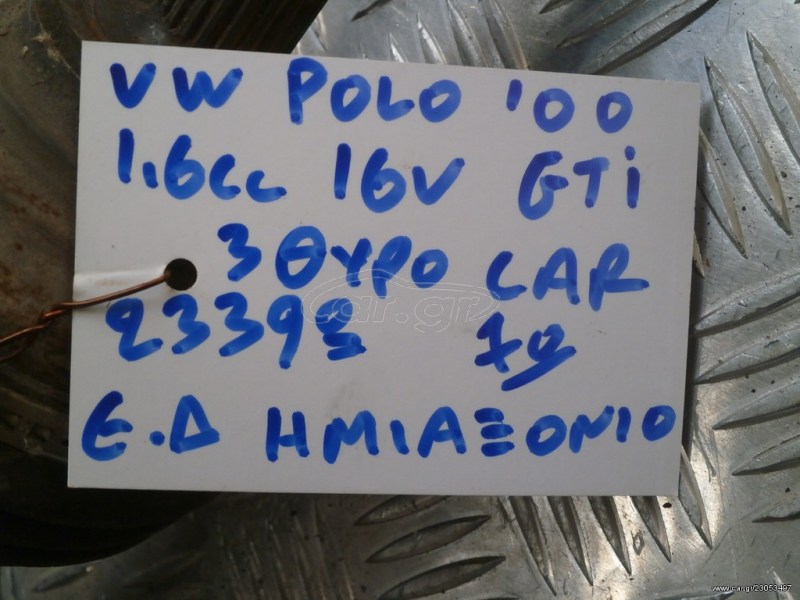 VW POLO '00
1.6cc 16V GTi
3ΘΥΡΟ CAR
23398 70
Ε.Δ ΗΜΙΑΞΟΝΙΟ
car.gr
www.car.gr/23053497